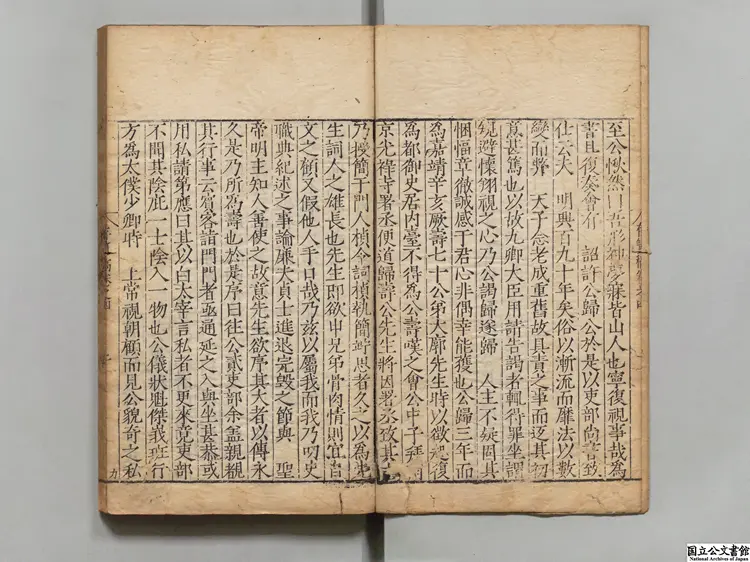 至公愀然曰吾形神夢寐皆山人也寧復視事哉為
書且復奏會有 詔許公歸公於是以吏部尚書致
仕云夫 明興百九十年矣俗以漸流而靡法以數
變而弊 天子念老成重舊故其責之事而迓其初
意甚篤也以故九卿大臣用請告謁者輒得罪坐謂
規避懷翔視之心乃公謁歸遂歸 人主不疑固其
悃愊章徹誠感于君心非偶幸能獲也公歸三年而
為嘉靖辛亥厥壽七十公弟大廓先生時以徵起復
為都御史居內臺不得為公壽嘆之會公中子拜
京光祿寺署丞便道歸壽公先生將因署丞致其
乃授簡于門人楨令詞楨執簡竚思者久之以為先
生詞人之雄長也先生即欲申兄弟骨肉情則宜自
文之顧又假他人手曰哉乃茲以屬我而我乃叨史
職典紀述之事論廉夫貞士進退完毀之節與 聖
帝明主知人善使之故意先生欲序其大者以傳永
久是乃所為壽也於是序曰往公貳吏部余盖親覩
其行事云賓客請門門者亟通延之入與坐甚恭或
用私請第應曰其以白太宰言私者不更來竟吏部
不聞其陰庇一士陰入一物也公儀狀魁傑義班行
方為太僕少卿時 上常視朝顧而見公貌奇之私
九
国立公文書館
National Archives of Japan